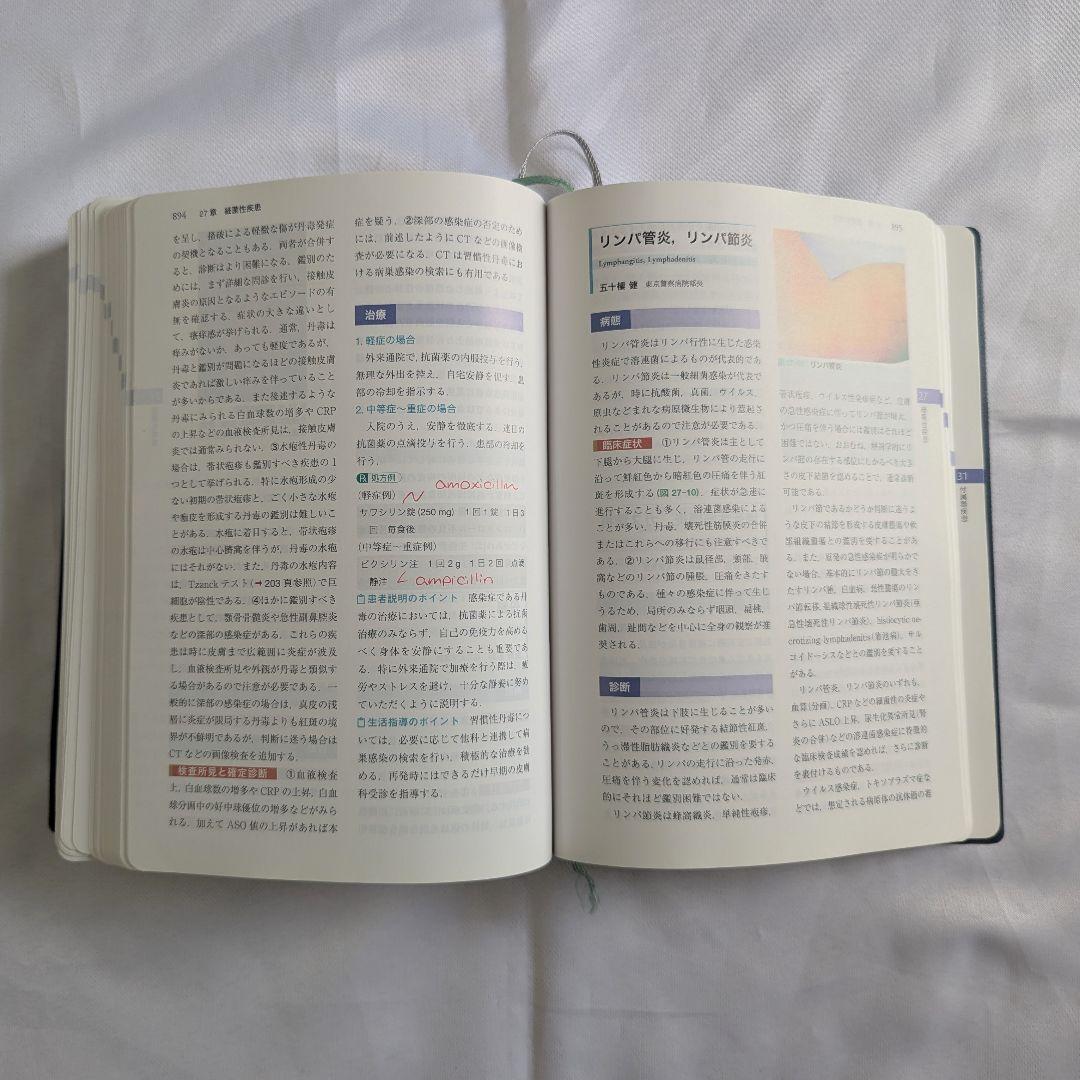 894 27章 細菌性疾患
を呈し,掻破による軽微な傷が丹毒発症
の契機となることもある.両者が合併す
ると,診断はより困難になる.鑑別のた
めには,まず詳細な問診を行い,接触皮
膚炎の原因となるようなエピソードの有
無を確認する.症状の大きな違いとし
て,瘙痒感が挙げられる.通常,丹毒は
痒みがないか,あっても軽度であるが,
丹毒と鑑別が問題になるほどの接触皮膚
炎であれば激しい痒みを伴っていること
が多いからである.また後述するような
丹毒にみられる白血球数の増多や CRP
の上昇などの血液検査所見は,接触皮膚
炎では通常みられない.③水疱性丹毒の
場合は,帯状疱疹も鑑別すべき疾患の1
つとして挙げられる.特に水疱形成の少
ない初期の帯状疱疹と,ごく小さな水疱
や膿疱を形成する丹毒の鑑別は難しいこ
とがある.水疱に着目すると,帯状疱疹
の水疱は中心臍窩を伴うが,丹毒の水疱
にはそれがない.また,丹毒の水疱内容
は,Tzanck テスト(→203 頁参照)で巨
細胞が陰性である.④ほかに鑑別すべき
疾患として,顎骨骨髄炎や急性副鼻腔炎
などの深部の感染症がある.これらの疾
患は時に皮膚まで広範囲に炎症が波及
し,血液検査所見や外観が丹毒と類似す
る場合があるので注意が必要である.一
般的に深部の感染症の場合は,真皮の浅
層に炎症が限局する丹毒よりも紅斑の境
界が不鮮明であるが,判断に迷う場合は
CT などの画像検査を追加する.
検査所見と確定診断 ①血液検査
上,白血球数の増多や CRP の上昇,白血
球分画中の好中球優位の増多などがみら
れる.加えて ASO 値の上昇があれば本
症を疑う.②深部の感染症の否定のため
には,前述したように CT などの画像検
査が必要になる.CT は習慣性丹毒にお
ける病巣感染の検索にも有用である.
治療
1. 軽症の場合
外来通院で,抗菌薬の内服投与を行う.
無理な外出を控え,自宅安静を促す.患
部の冷却を指示する.
2. 中等症〜重症の場合
入院のうえ,安静を徹底する.連日の
抗菌薬の点滴投与を行う.患部の冷却を
行う.
処方例
amoxicillin
(軽症例)
サワシリン錠(250 mg) 1回1錠 1日3
回 毎食後
(中等症〜重症例)
ビクシリン注 1回2g 1日2回 点滴
静注 ampicillin
患者説明のポイント 感染症である丹
毒の治療においては,抗菌薬による抗菌
治療のみならず,自己の免疫力を高める
べく身体を安静にすることも重要であ
る.特に外来通院で加療を行う際は,疲
労やストレスを避け,十分な静養に努め
ていただくように説明する.
生活指導のポイント 習慣性丹毒につ
いては,必要に応じて他科と連携して病
巣感染の検索を行い,積極的な治療を勧
める.再発時にはできるだけ早期の皮膚
科受診を指導する.
895
リンパ管炎,リンパ節炎
Lymphangitis, Lymphadenitis
五十棲 健 東京警察病院部長
病態
リンパ管炎はリンパ行性に生じた感染
性炎症で溶連菌によるものが代表的であ
る.リンパ節炎は一般細菌感染が代表で
あるが,時に抗酸菌,真菌,ウイルス,
原虫などまれな病原微生物により惹起さ
れることがあるので注意が必要である.
臨床症状 ①リンパ管炎は主として
下腿から大腿に生じ,リンパ管の走行に
沿って鮮紅色から暗紅色の圧痛を伴う紅
斑を形成する(図 27-10).症状が急速に
進行することも多く,溶連菌感染による
ことが多い.丹毒,壊死性筋膜炎の合併
またはこれらへの移行にも注意すべきで
ある.②リンパ節炎は鼠径部,頸部,腋
窩などのリンパ節の腫脹,圧痛をきたす
ものである.種々の感染症に伴って生じ
うるため,局所のみならず咽頭,扁桃,
歯周,趾間などを中心に全身の観察が推
奨される.
診断
リンパ管炎は下肢に生じることが多い
ので,その部位に好発する結節性紅斑,
うっ滞性脂肪織炎などとの鑑別を要する
ことがある.リンパの走行に沿った発赤,
圧痛を伴う変化を認めれば,通常は臨床
的にそれほど鑑別困難ではない.
リンパ節炎は蜂窩織炎,単純性疱疹,
リンパ管炎
帯状疱疹,ウイルス性発疹症など,皮膚
の急性感染症に伴ってリンパ節が増大,
かつ圧痛を伴う場合には鑑別はそれほど
困難ではない.
可能である.
リンパ節であるかどうか判断に迷うよ
うな皮下の結節を形成する皮膚腫瘍や軟
部組織腫瘍との鑑別を要することがあ
る.また,原発の急性感染症が明らかで
ない場合,基本的にリンパ節の腫大をき
たすリンパ腫,白血病,悪性腫瘍のリン
パ節転移,組織球性壊死性リンパ節炎(亜
急性壊死性リンパ節炎),histiocytic ne-
crotizing lymphadenitis(菊池病),サル
コイドーシスなどとの鑑別を要すること
がある.
リンパ管炎,リンパ節炎のいずれも,
血算(分画),CRP などの細菌性の炎症や
さらに ASLO 上昇,尿生化異常所見(腎
炎の合併)などの溶連菌感染症に特徴的
な臨床検査成績を認めれば,さらに診断
を裏付けるものである.
ウイルス感染症,トキソプラズマ症な
どでは,想定される病原体の抗体価の着
27
細菌性疾患
31
付属器疾患